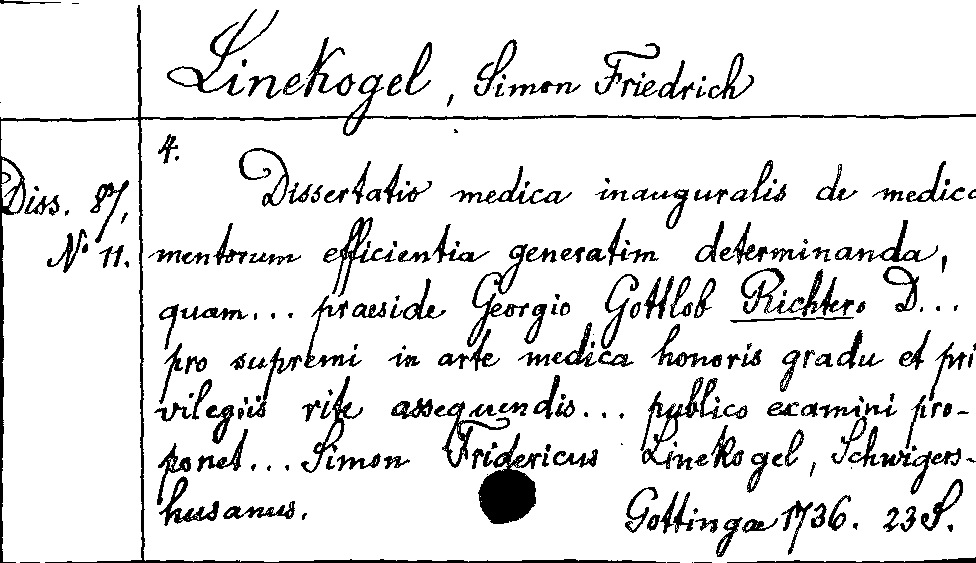 Linekogel, Simon Friedrich
4.
Diss. 87,
No 11.
Dissertatio medica inauguralis de medica
mentorum efficientia generatim determinanda,
quam... praeside Georgio Gottlob Richtero D...
pro supremi in arte medica honoris gradu et pri
vilegiis rite assequendis... publico examini pro-
ponet... Simon Fridericus Linekogel, Schwigers-
husanus.
Gottingae 1736. 23 S.